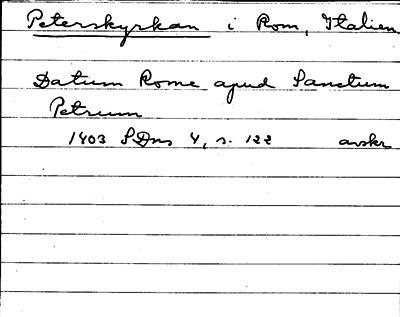 Peterskyrkan i Rom, Italien
Datum Rome apud Sanctum
Petrum
1403 SDns 4, s. 122 avskr